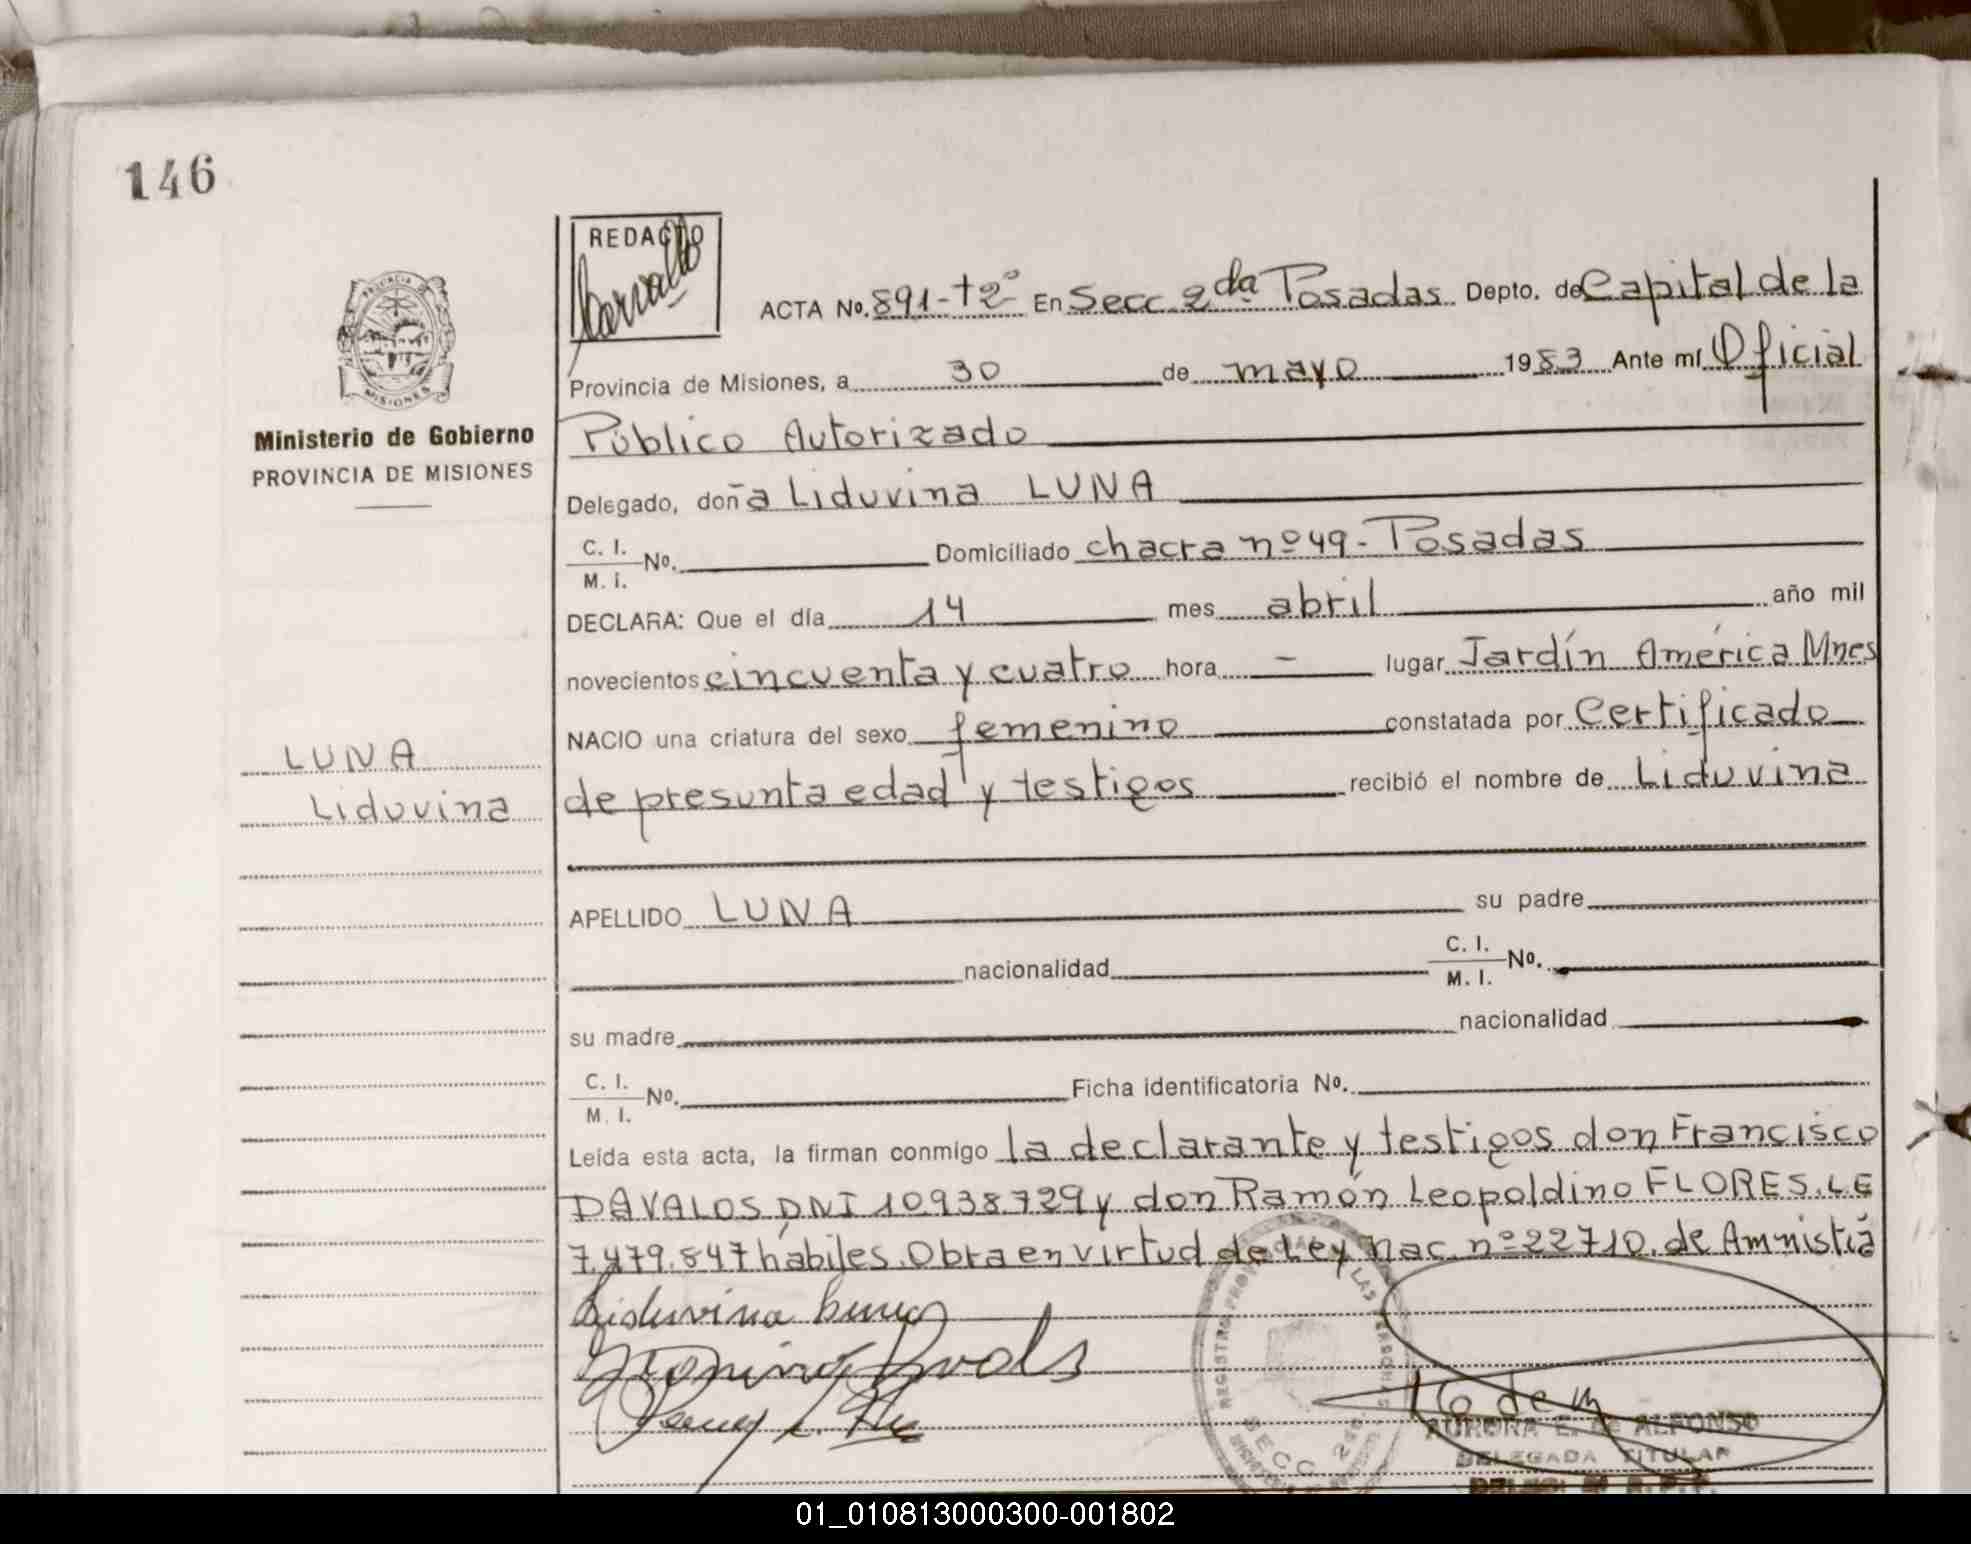 146
REDACTO
Carvallo
ACTA No. 891-t2º En Secc 2da Posadas Depto. de Capital de la
Provincia de Misiones, a 30 de mayo 1983 Ante mí Oficial
Público Autorizado
Delegado, doña Liduvina LUNA
C. I.
M. I. No. Domiciliado chacra nº 49 - Posadas
DECLARA: Que el día 14 mes abril año mil
novecientos cincuenta y cuatro hora - lugar Jardín América Mnes
NACIO una criatura del sexo femenino constatada por Certificado
de presunta edad y testigos recibió el nombre de Liduvina
APELLIDO LUNA su padre
nacionalidad C. I.
M. I. No.
su madre nacionalidad
C. I.
M. I. No. Ficha identificatoria No.
Leída esta acta, la firman conmigo la declarante y testigos don Francisco
DAVALOS DNI 10.938.729 y don Ramón Leopoldino FLORES. LE
7.479.847 hábiles. Obra en virtud de Ley Nac. nº 22710. de Amnistiá
Liduvina Luna
AURORA E. de ALFONSO
DELEGADA TITULAR
PROVINCIA
MISIONES
Ministerio de Gobierno
PROVINCIA DE MISIONES
LUNA
Liduvina
REGISTRO PROVINCIAL DE LAS PERSONAS
SECC 2da
01_010813000300-001802